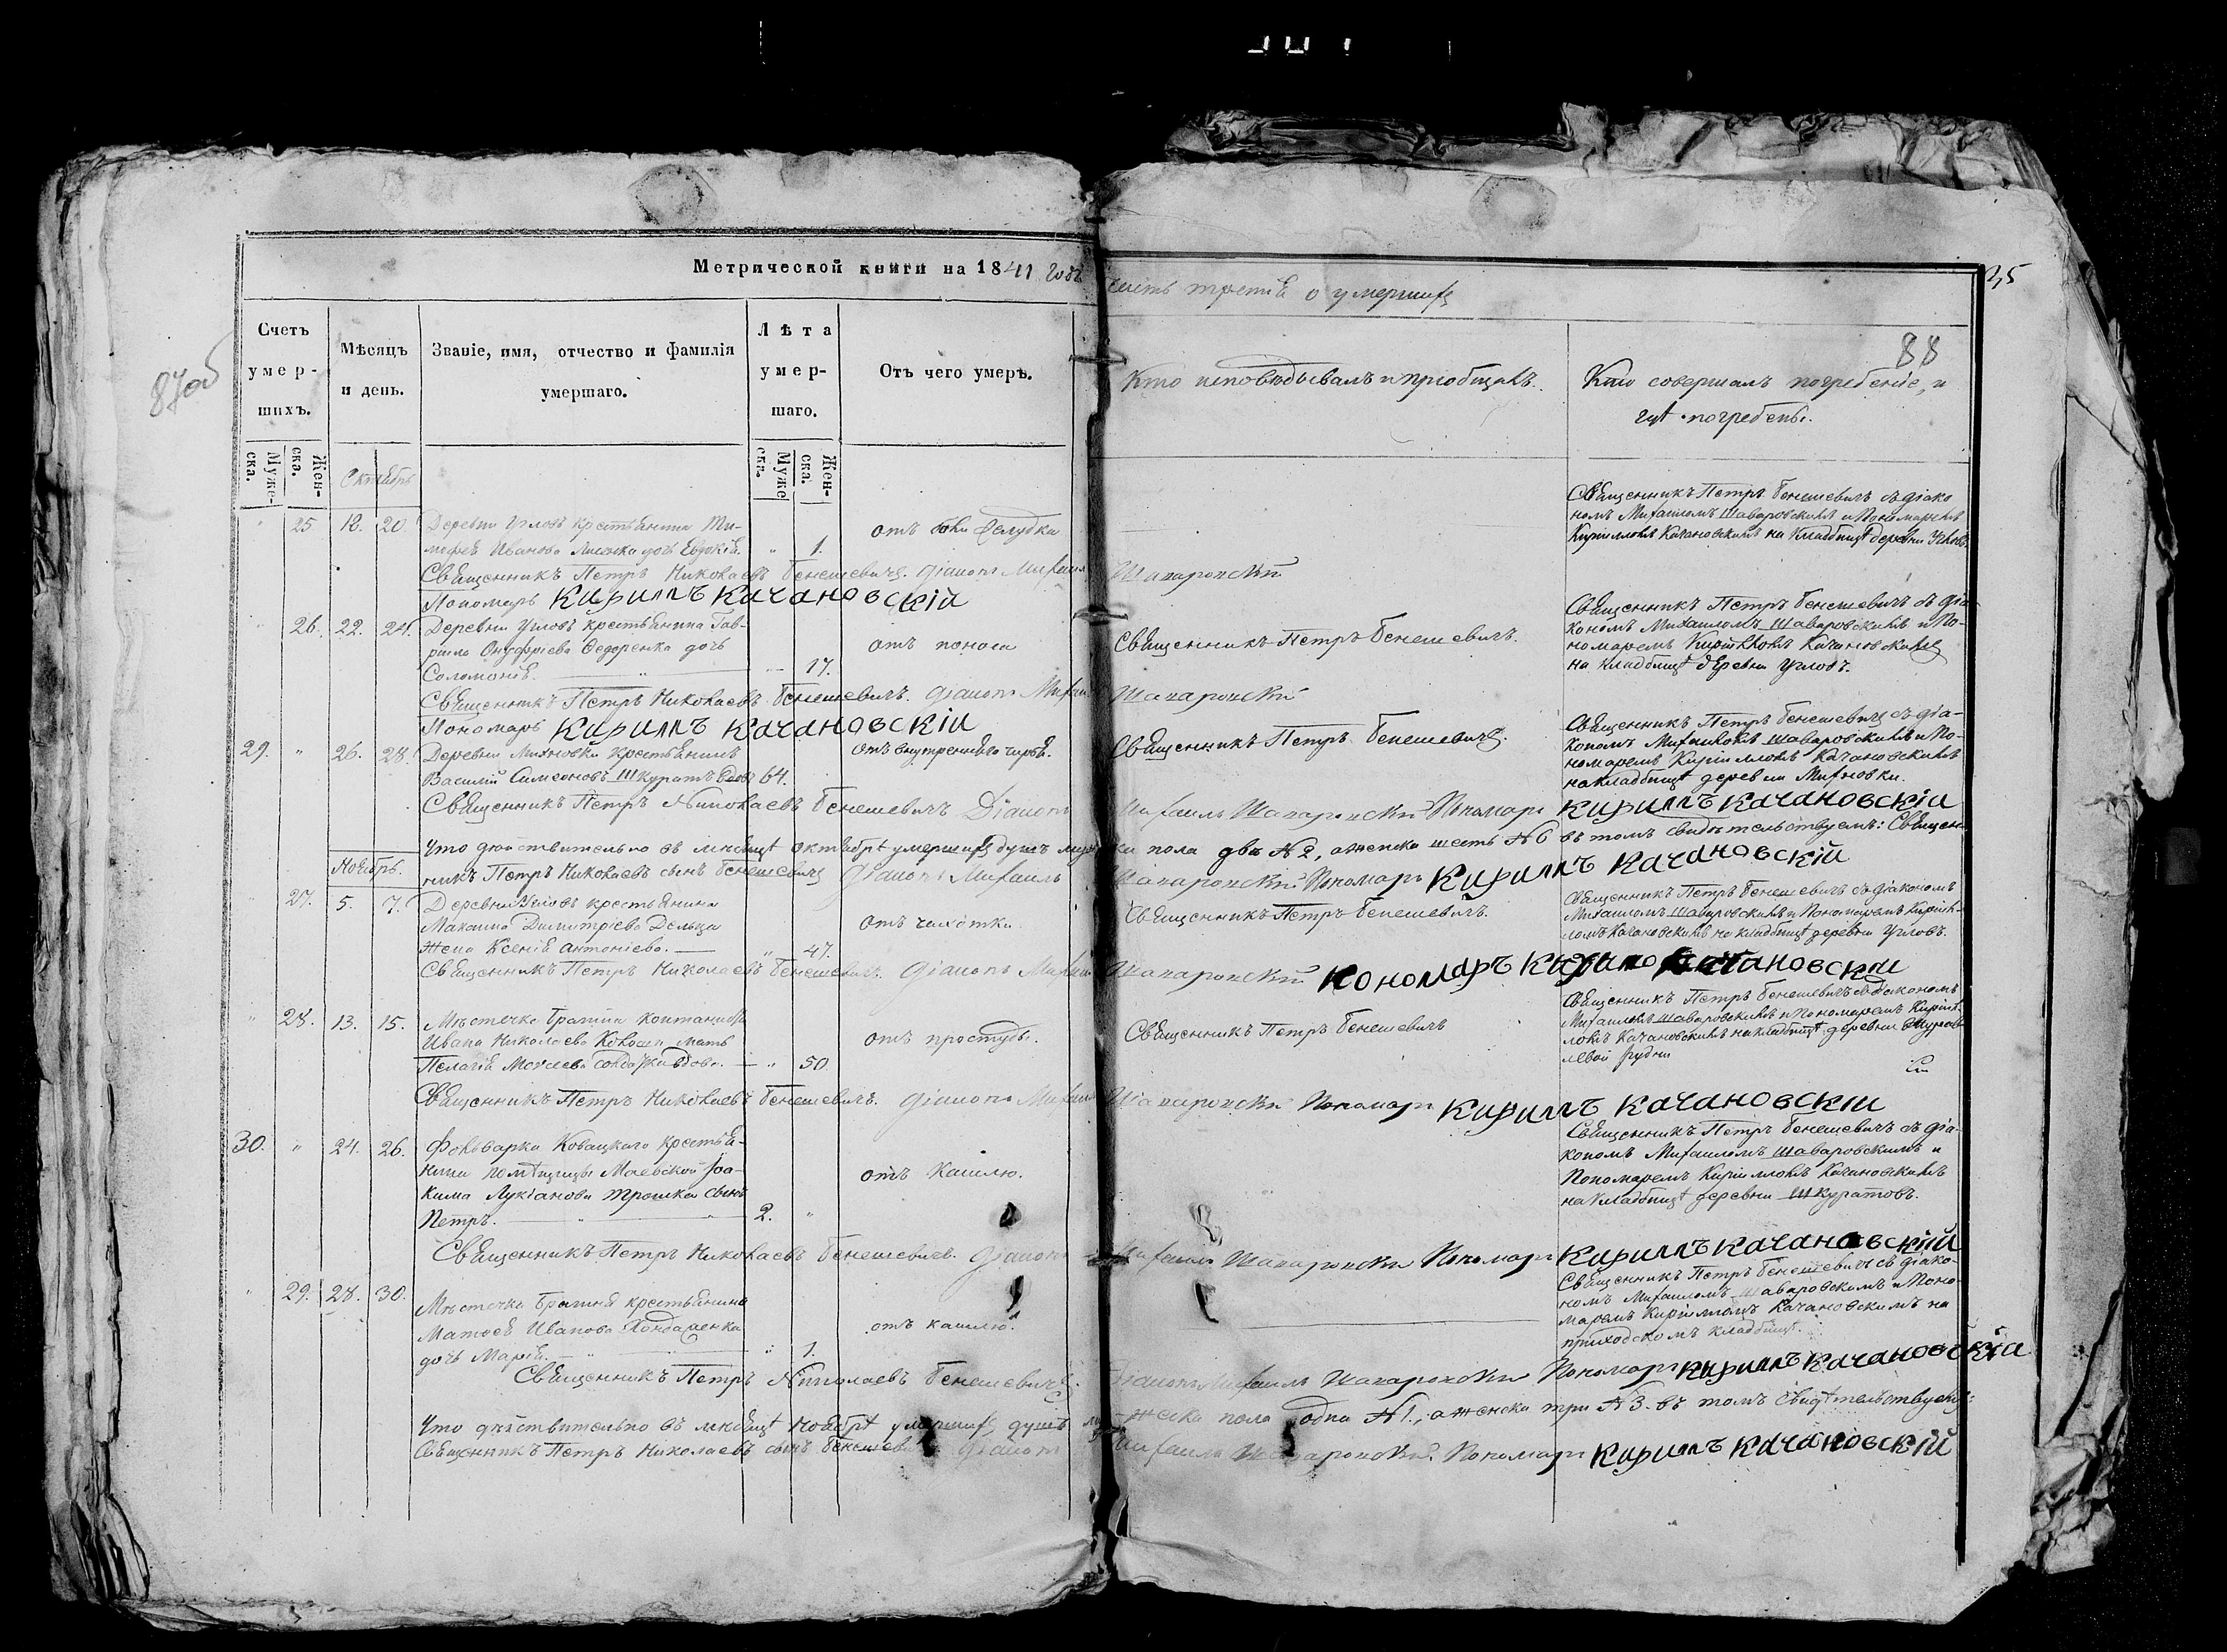 Метрической книги на 1841 годъ
часть третія о умершихъ
35
87об
88
Счетъ умер-шихъ.
Мѣсяцъ и день.
Званіе, имя, отчество и фамилія умершаго.
Лѣта умер-шаго.
Отъ чего умеръ.
Кто исповѣдывалъ и пріобщалъ.
Кто совершалъ погребеніе, и гдѣ погребены.
Муже-ска.
Жен-ска.
Муже ска.
Жен-ска.
Октябрь
25 18. 20
Деревни Угловъ крестьянина Ти-
мофея Иванова дочь Евдокія. 1.
отъ желудка
Священникъ Петръ Бенешевичъ съ діако
номъ Михаиломъ Шаваровскимъ и Пономаремъ
Кирилломъ Качановскимъ на кладбищѣ деревни Угловъ.
Священникъ Петръ Николаевъ Бенешевичъ. Діаконъ Михаилъ Шаваровскій
Пономарь Кириллъ Качановскій
26. 22. 24.
Деревни Угловъ крестьянина Гав-
ріила Онуфріева Федоренка дочь
Соломонія. 17.
отъ поноса
Священникъ Петръ Бенешевичъ.
Священникъ Петръ Бенешевичъ съ діа-
кономъ Михаиломъ Шаваровскимъ и По-
номаремъ Кирилломъ Качановскимъ
на кладбищѣ деревни Угловъ.
Священникъ Петръ Николаевъ Бенешевичъ. Діаконъ Михаилъ Шаваровскій
Пономарь Кириллъ Качановскій
29. " 26. 28.
Деревни Михновки крестьянинъ
Василій Симеоновъ Шкуратъ вдовъ 64.
отъ внутренняго чирья.
Священникъ Петръ Бенешевичъ.
Священникъ Петръ Бенешевичъ съ діа-
кономъ Михаиломъ Шаваровскимъ и По-
номаремъ Кирилломъ Качановскимъ
на кладбищѣ деревни Михновки.
Священникъ Петръ Николаевъ Бенешевичъ Діаконъ Михаилъ Шаваровскій Пономарь Кириллъ Качановскій
Что дѣйствительно въ мѣсяцѣ октябрѣ умершихъ душъ мужеска пола двѣ №2, а женска шесть №6 въ томъ свидѣтельствуемъ: Священ-
никъ Петръ Николаевъ сынъ Бенешевичъ Діаконъ Михаилъ Шаваровскій Пономарь Кириллъ Качановскій
Ноябрь.
27. 5. 7.
Деревни Угловъ крестьянина
Максима Димитріева Дельца
жена Ксенія Антоніева. 47.
отъ чахотки
Священникъ Петръ Бенешевичъ.
Священникъ Петръ Бенешевичъ съ діакономъ
Михаиломъ Шаваровскимъ и Пономаремъ Кирил-
ломъ Качановскимъ на кладбищѣ деревни Угловъ.
Священникъ Петръ Николаевъ Бенешевичъ. Діаконъ Михаилъ Шаваровскій Пономаръ Качановскій
28. 13. 15.
Мѣстечка Брагина
Ивана Николаева Кокоши мать
Пелагія вдова. 50
отъ простуды.
Священникъ Петръ Бенешевичъ
Священникъ Петръ Бенешевичъ съ Діакономъ
Михаиломъ Шаваровскимъ и Пономаремъ Кирил-
ломъ Качановскимъ на кладбищѣ деревни Журав-
левой Рудни
Священникъ Петръ Николаевъ Бенешевичъ. Діаконъ Михаилъ Шаваровскій Пономарь Кириллъ Качановскій
30. " 24. 26.
Фольварка Ковацкаго крестья-
нина помѣщицы Маевской Іоа-
кима Лукіанова Трошка сынъ
Петръ. 2. "
отъ кашлю.
Священникъ Петръ Бенешевичъ съ діа-
кономъ Михаиломъ Шаваровскимъ и
Пономаремъ Кирилломъ Качановскимъ
на кладбищѣ деревни Шкуратовъ.
Священникъ Петръ Николаевъ Бенешевичъ. Діаконъ Михаилъ Шаваровскій Пономарь Кириллъ Качановскій
29. 28. 30.
Мѣстечка Брагина крестьянина
Матѳея Иванова Хондаренка
дочь Марія. 1.
отъ кашлю.
Священникъ Петръ Бенешевичъ съ діако-
номъ Михаиломъ Шаваровскимъ и Поно-
маремъ Кирилломъ Качановскимъ на
приходскомъ кладбищѣ.
Священникъ Петръ Николаевъ Бенешевичъ. Діаконъ Михаилъ Шаваровскій Пономарь Кириллъ Качановскій
Что дѣйствительно въ мѣсяцѣ ноябрѣ умершихъ душъ мужеска пола одна №1., а женска три №3. въ томъ свидѣтельствуемъ:
Священникъ Петръ Николаевъ сынъ Бенешевичъ Діаконъ Михаилъ Шаваровскій. Пономарь Кириллъ Качановскій